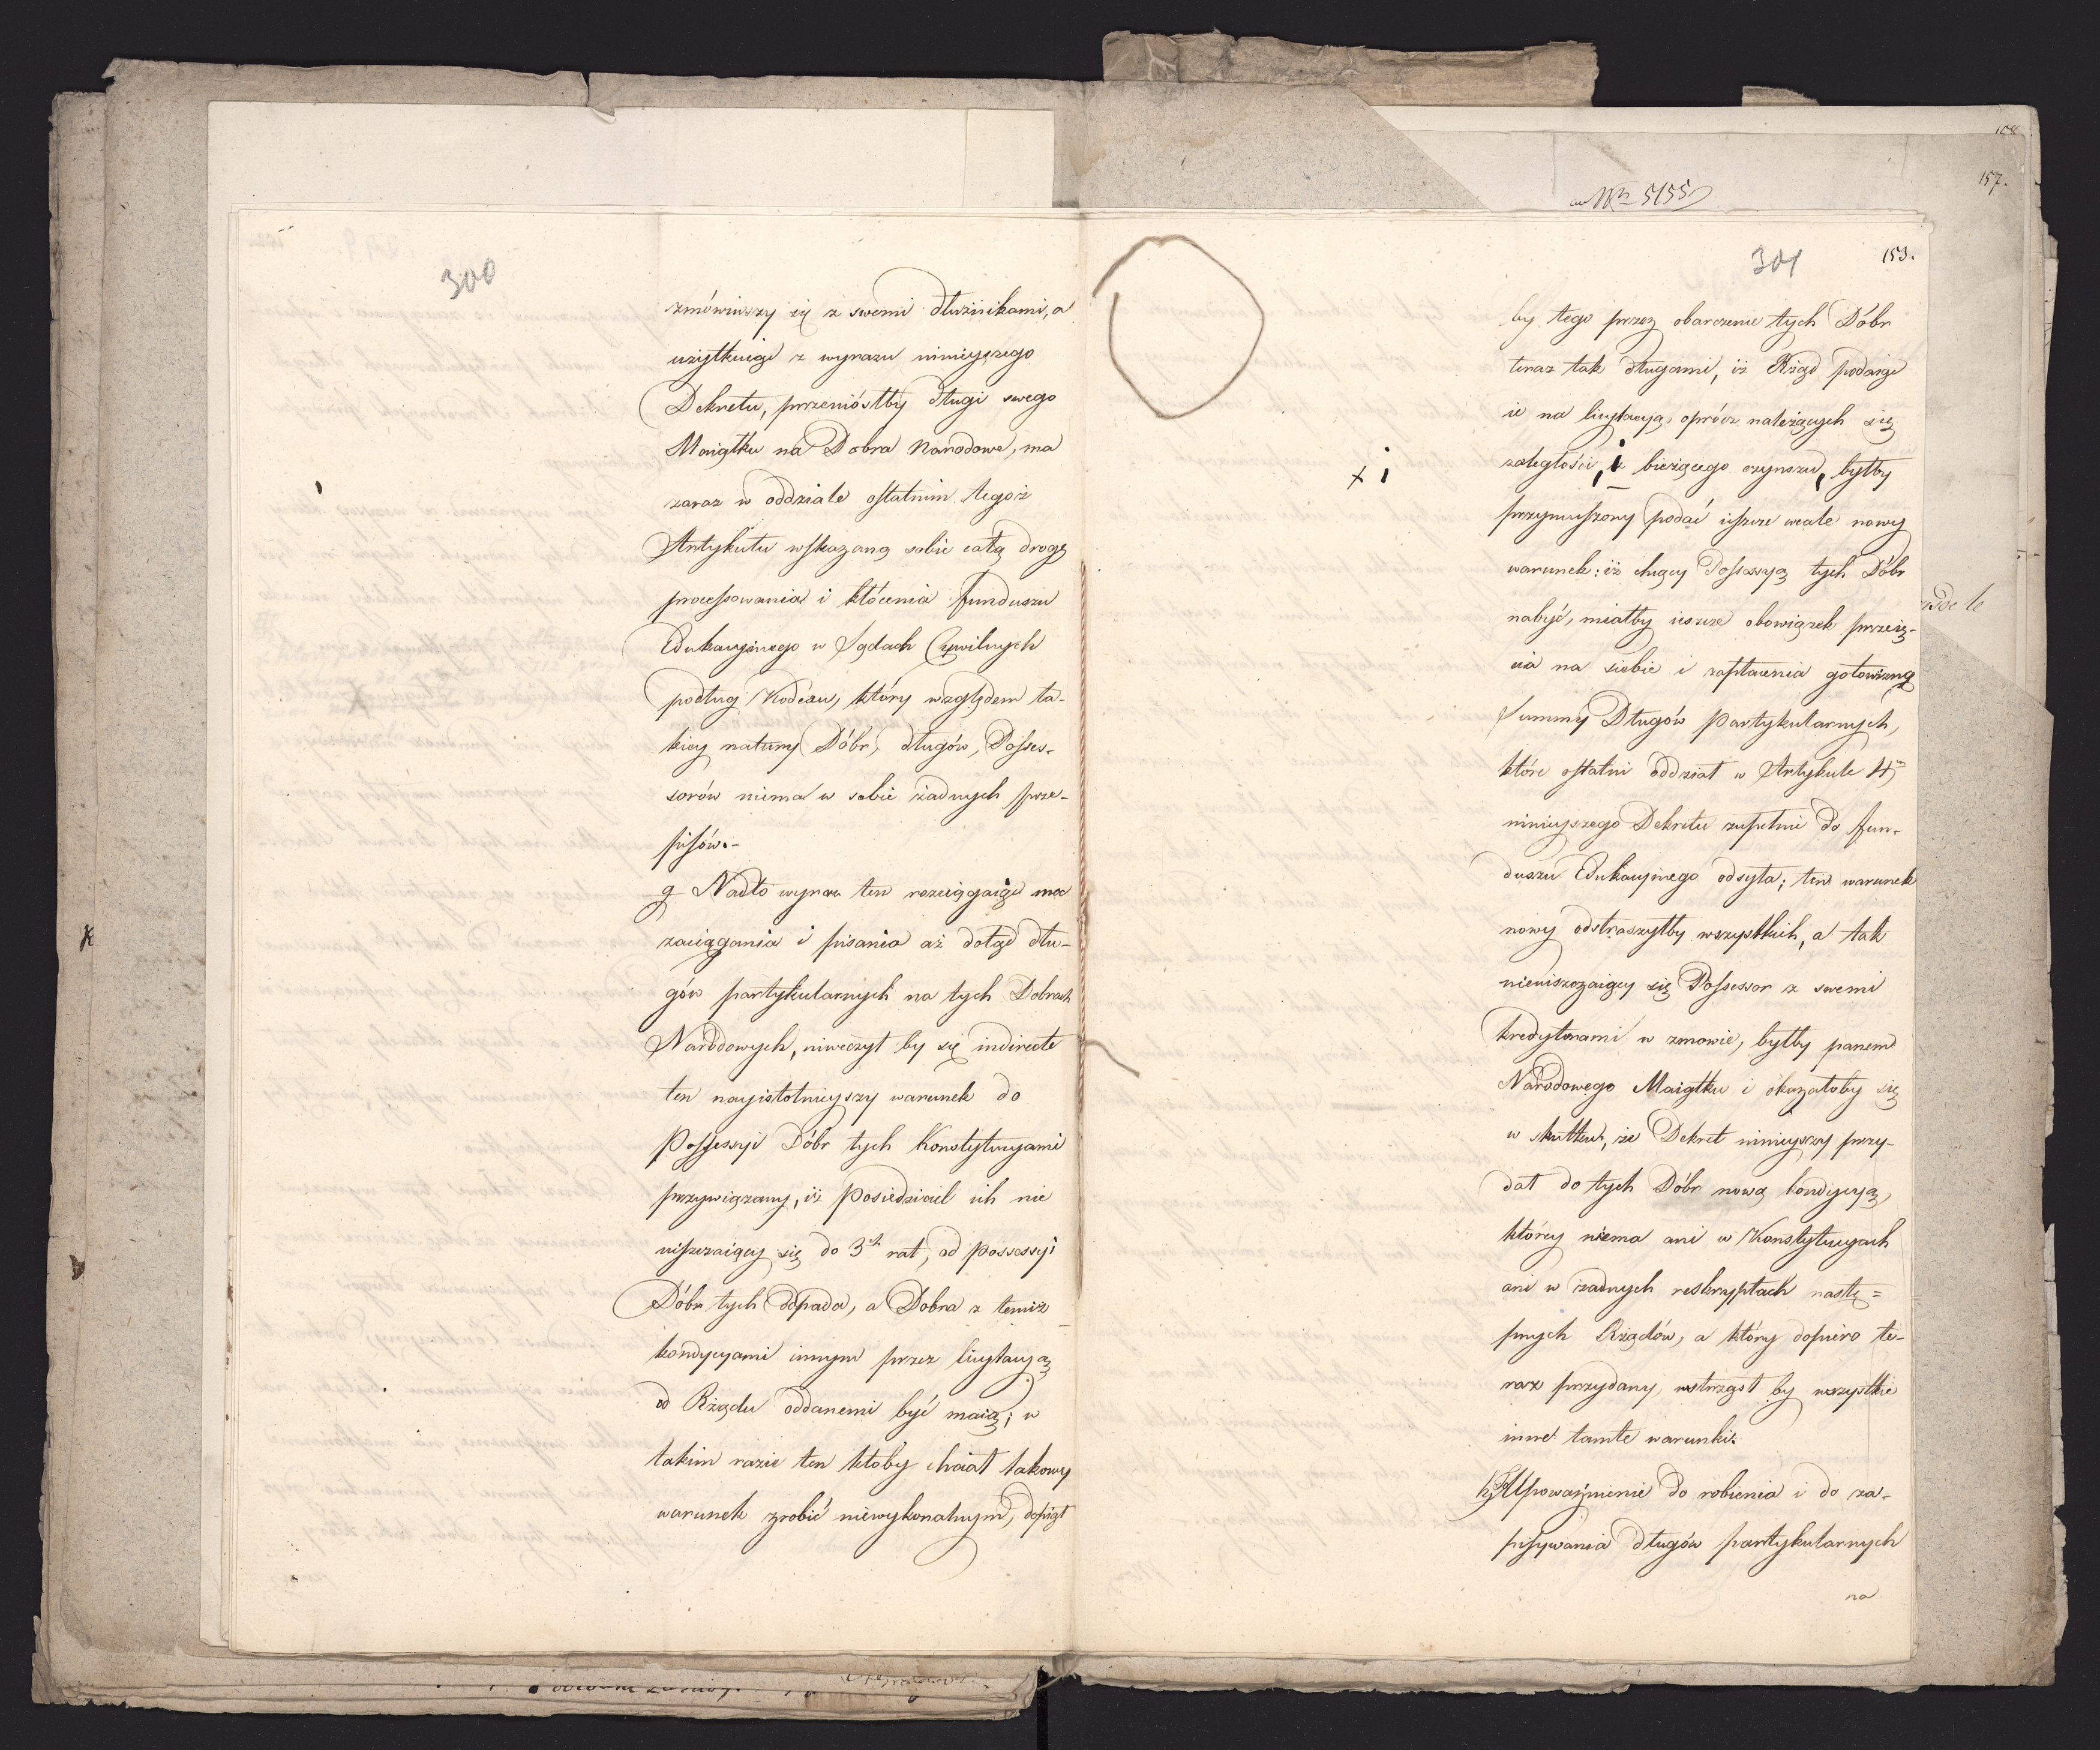 300
zmówiwszy się z swemi dłużnikami, a
użytkuiąc z wyrazu ninieyszego
Dekretu, przeniósłby długi swego
Maiątku na Dobra Narodowe, ma
zaraz w oddziale ostatnim tegoż
Artykułu wskazaną sobie całą drogę
processowania i kłócenia funduszu
Edukacyinego w Sądach Cywilnych
podług Kodexu, który względem ta-
kiey natury Dóbr, długów, Posses-
sorów niema w sobie żadnych prze-
pisów.-
g Nadto wyraz ten rozciągaiąc moc
zaciągania i pisania aż dotąd dłu-
gów partykularnych na tych Dobrach
Narodowych, niweczył by się indirecte
ten nayistotnieyszy warunek do
Possessyi Dóbr tych Konstytucyami
przywiązany, iż Posiedziciel ich nie
uiszczaiący się do 3ch rat, od possessyi
Dóbr tych odpada, a Dobra z temiż
kondycyami innym przez licytacyą
od Rządu oddanemi być maią; w
takim razie ten ktoby chciał takowy
warunek zrobić niewykonalnym, dopiął
ad Nr 5155
158
157.
301
153.
by tego przez obarczenie tych Dóbr
teraz tak długami, iż Rząd podaiąc
ie na licytacyą, oprócz należących się
x i
zaległości, i bieżącego czynszu, byłby
przymuszony podać ieszcze wcale nowy
warunek: iż chcący Possessyą tych Dóbr
nabyć, miałby ieszcze obowiązek przeię-
cia na siebie i zapłacenia gotowizną
Summy Długów Partykularnych,
które ostatni oddział w Artykule 4m
ninieyszego Dekretu zupełnie do fun-
duszu Edukacyinego odsyła; ten warunek
nowy odstraszyłby wszystkich, a tak
nieuiszczaiący się Possessor z swemi
kredytorami w zmowie, byłby panem
Narodowego Maiątku i okazałoby się
w skutku, że Dekret ninieyszy przy-
dał do tych Dóbr nową kondycyą,
którey niema ani w Konstytucyach
ani w żadnych reskryptach nastę=
pnych Rządów, a który dopiero te-
raz przydany, wstrząsł by wszystkie
inne tamte warunki.
h) Upoważnienie do robienia i do za-
pisywania długów partykularnych
na